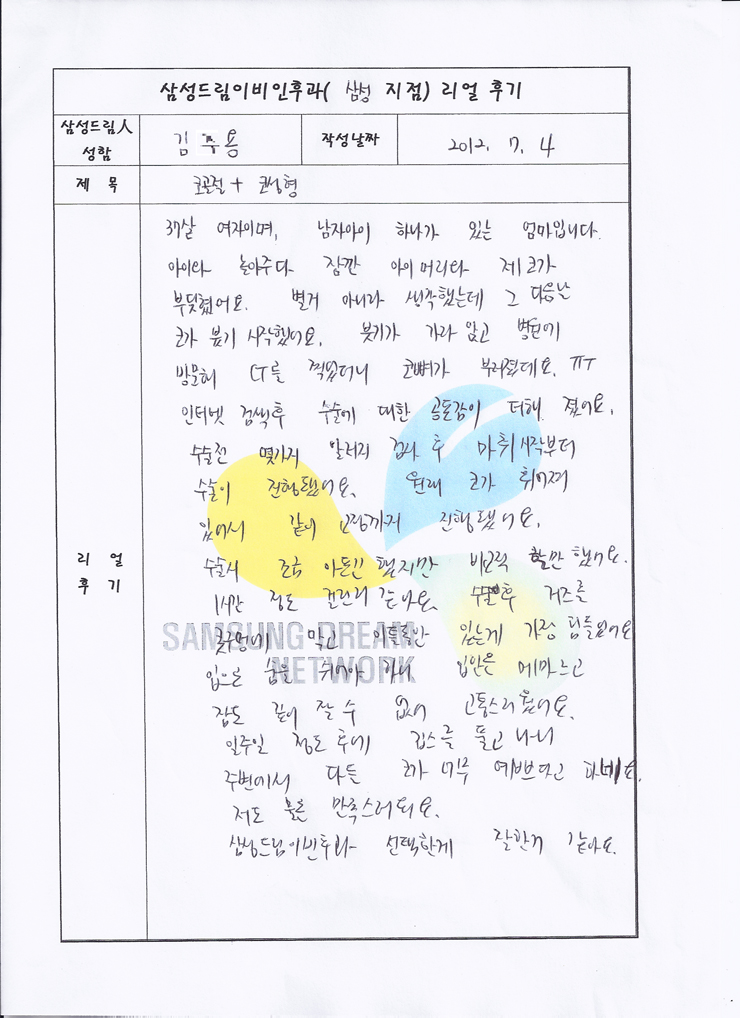 삼성드림이비인후과( 삼성 지점) 리얼 후기
삼성드림人 성함
김주용
작성날짜
2012. 7. 4
제 목
코골절 + 코성형
리 얼 후 기
37살 여자이며, 남자아이 하나가 있는 엄마입니다.
아이와 놀아주다 잠깐 아이 머리와 제 코가
부딪혔어요. 별거 아니라 생각했는데 그 다음날
코가 붓기 시작했어요. 붓기가 가라 앉고 병원에
방문해 CT를 찍었더니 코뼈가 부러졌데요. ㅠㅠ
인터넷 검색후 수술에 대한 공포감이 더해 졌어요.
수술전 몇가지 알러지 검사 후 마취시작부터
수술이 진행됐어요. 원래 코가 휘어져
있어서 같이 교정까지 진행됐어요.
수술시 조금 아프긴 했지만 비교적 할만 했어요.
1시간 정도 걸린거 같아요. 수술후 거즈를
콧구멍에 막고 이틀동안 있는게 가장 힘들었어요
SAMSUNG DREAM NETWORK
입으로 숨을 쉬어야 하니 입안은 메마르고
잠도 깊이 잘 수 없어 고통스러웠어요.
일주일 정도 후에 깁스를 풀고 나니
주변에서 다들 코가 너무 예쁘다고 하네요.
저도 물론 만족스러워요.
삼성드림이빈후과 선택한게 잘한거 같아요.